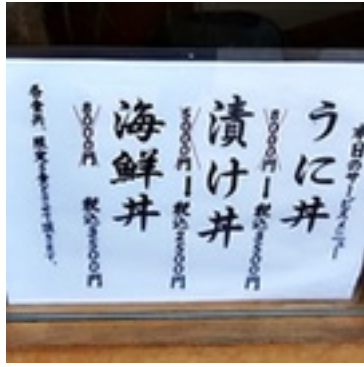 本日のサービスメニュー
うに丼
8000円 税込3500円
漬け丼
5000円 税込2500円
海鮮丼
8000円 税込3500円
させて頂きます。